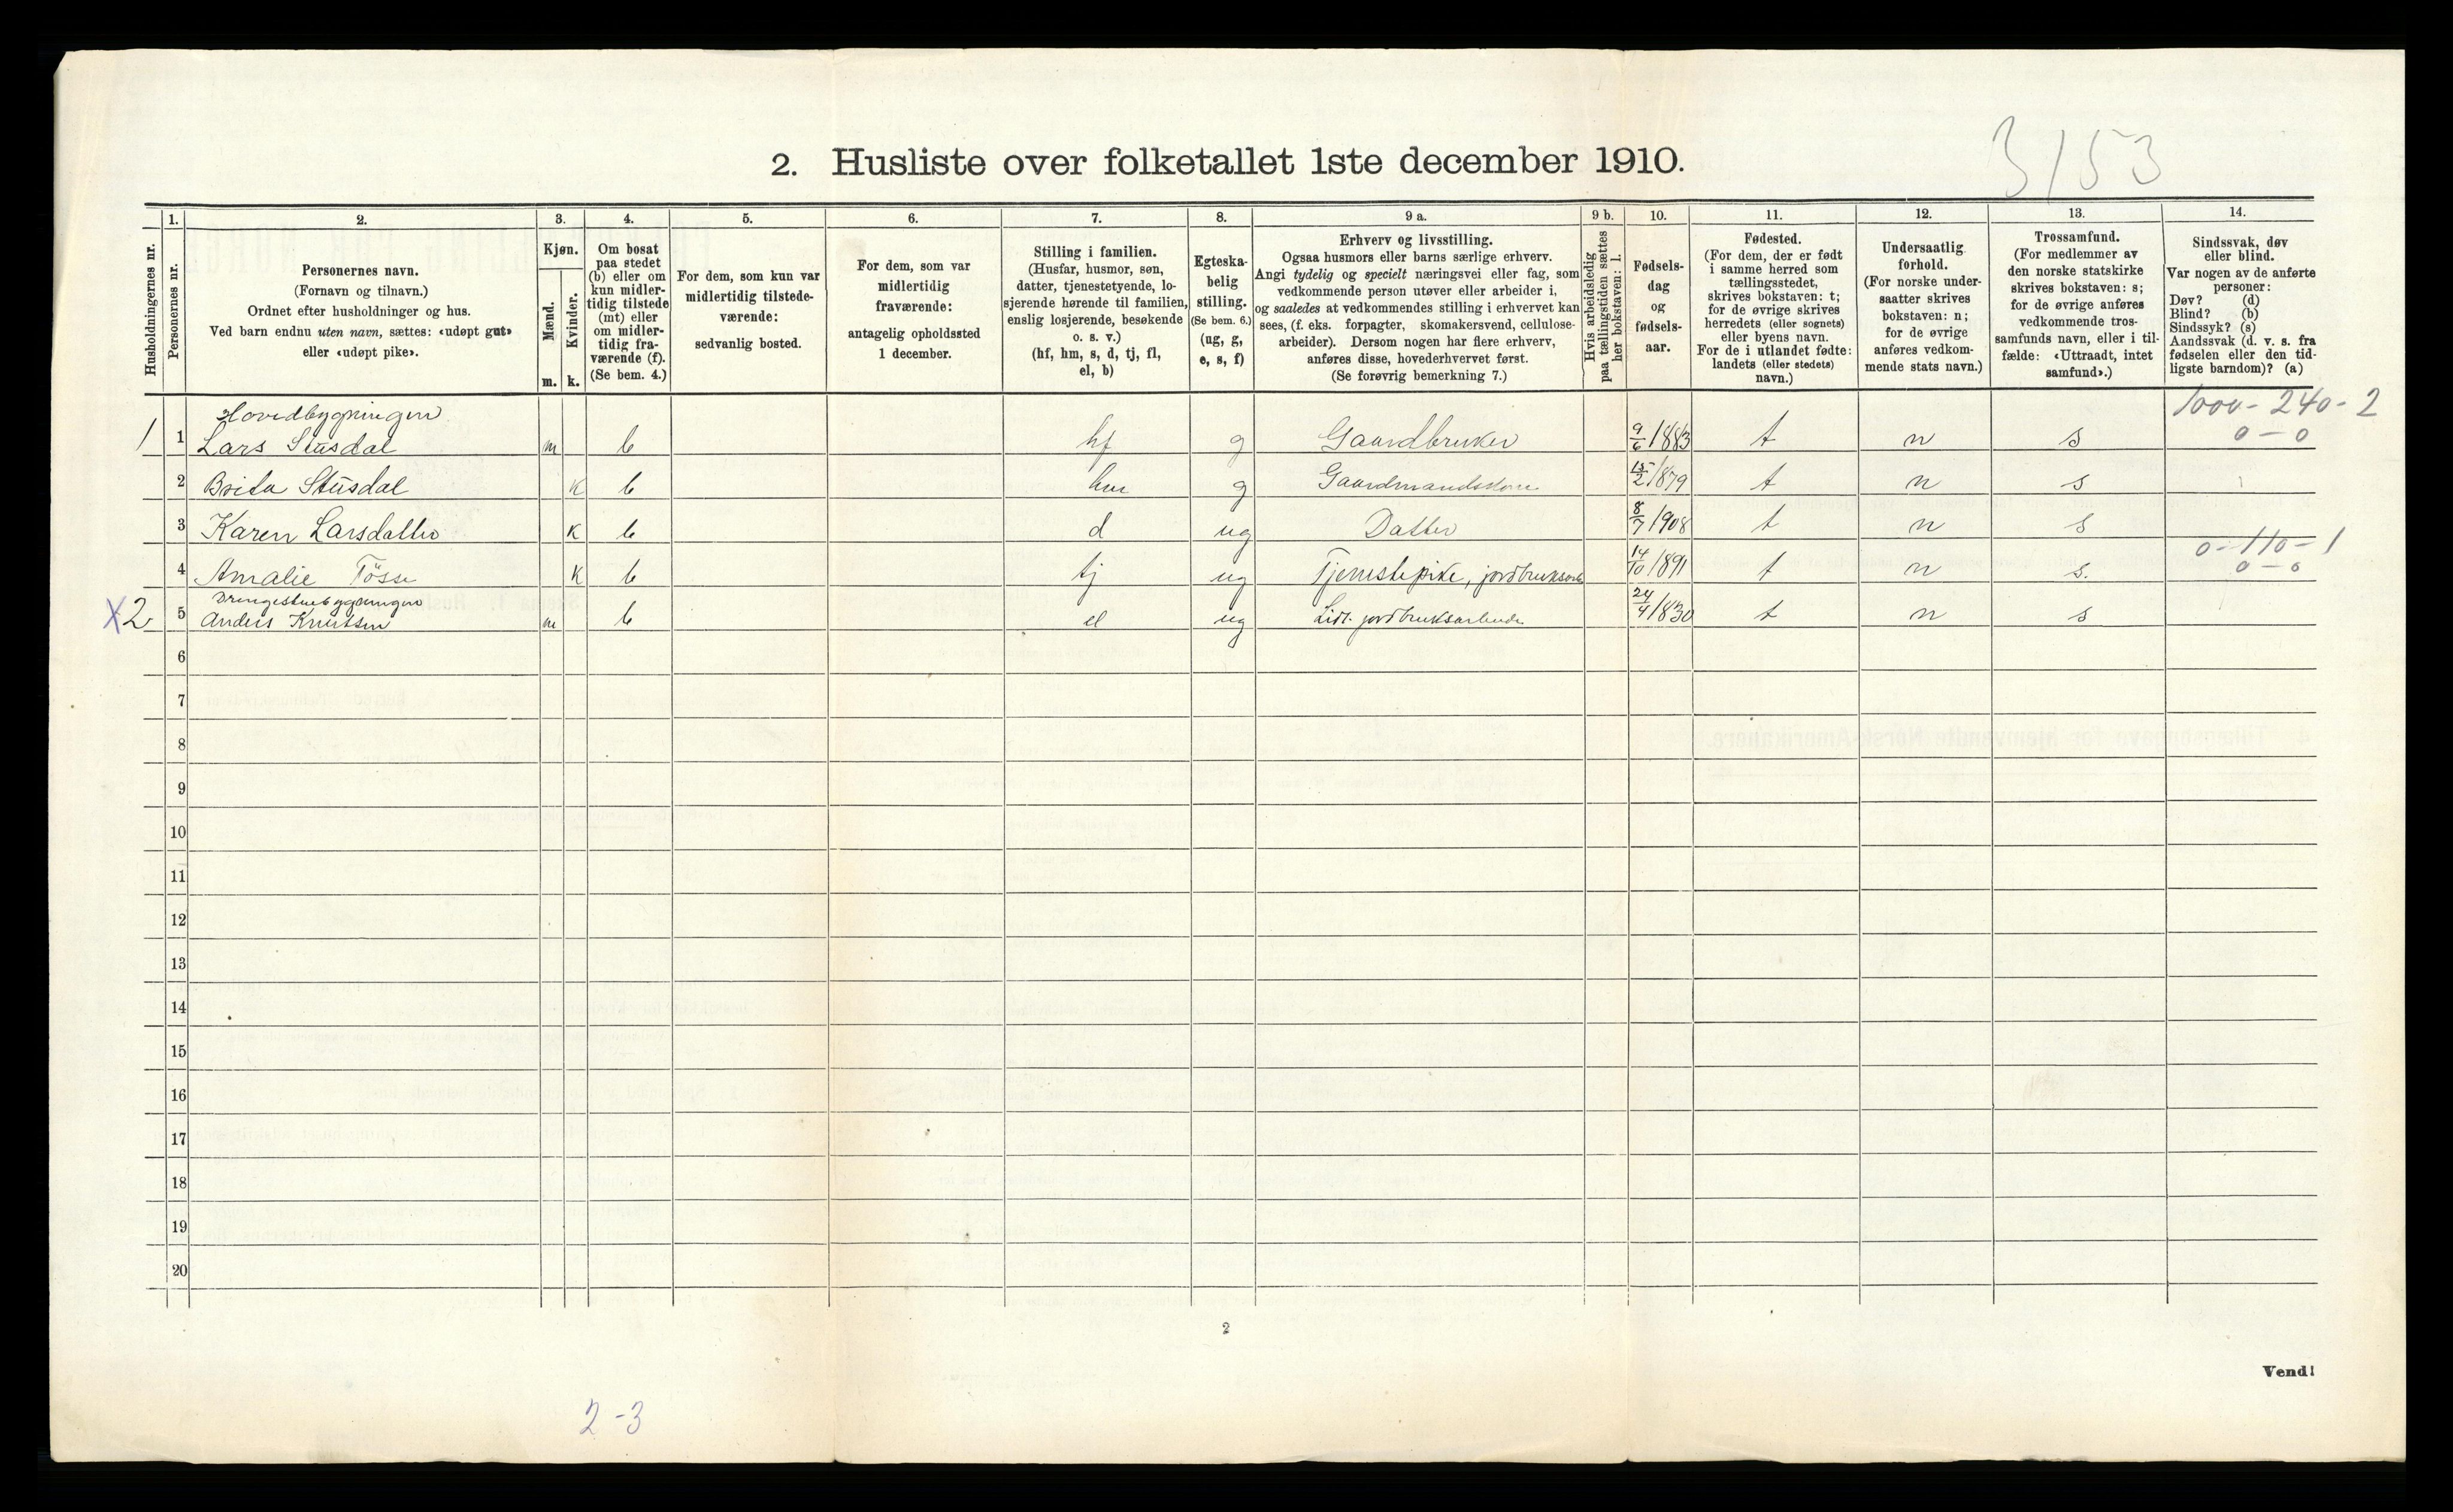 3153
2. Husliste over folketallet 1ste december 1910.
Husholdningernes nr.
1. 2. 3. 4. 5. 6. 7. 8. 9 a. 9 b. 10. 11. 12. 13. 14.
Personernes nr.
Personernes navn.
(Fornavn og tilnavn.)
Ordnet efter husholdninger og hus.
Ved barn endnu uten navn, sættes: «udøpt gut»
eller «udøpt pike».
Kjøn.
Mænd.
Kvinder.
m. k.
Om bosat
paa stedet
(b) eller om
kun midler-
tidig tilstede
(mt) eller
om midler-
tidig fra-
værende (f).
(Se bem. 4.)
For dem, som kun var
midlertidig tilstede-
værende:
sedvanlig bosted.
For dem, som var
midlertidig
fraværende:
antagelig opholdssted
1 december.
Stilling i familien.
(Husfar, husmor, søn,
datter, tjenestetyende, lo-
sjerende hørende til familien,
enslig losjerende, besøkende
o. s. v.)
(hf, hm, s, d, tj, fl,
el, b)
Egteska-
belig
stilling.
(Se bem. 6.)
(ug, g,
e, s, f)
Erhverv og livsstilling.
Ogsaa husmors eller barns særlige erhverv.
Angi tydelig og specielt næringsvei eller fag, som
vedkommende person utøver eller arbeider i,
og saaledes at vedkommendes stilling i erhvervet kan
sees, (f. eks. forpagter, skomakersvend, cellulose-
arbeider). Dersom nogen har flere erhverv,
anføres disse, hovederhvervet først.
(Se forøvrig bemerkning 7.)
Hvis arbeidsledig
paa tællingstiden sættes
her bokstaven: l.
Fødsels-
dag
og
fødsels-
aar.
Fødested.
(For dem, der er født
i samme herred som
tællingsstedet,
skrives bokstaven: t;
for de øvrige skrives
herredets (eller sognets)
eller byens navn.
For de i utlandet fødte:
landets (eller stedets)
navn.)
Undersaatlig
forhold.
(For norske under-
saatter skrives
bokstaven: n;
for de øvrige
anføres vedkom-
mende stats navn.)
Trossamfund.
(For medlemmer av
den norske statskirke
skrives bokstaven: s;
for de øvrige anføres
vedkommende tros-
samfunds navn, eller i til-
fælde: «Uttraadt, intet
samfund».)
Sindssvak, døv
eller blind.
Var nogen av de anførte
personer:
Døv? (d)
Blind? (b)
Sindssyk? (s)
Aandssvak (d. v. s. fra
fødselen eller den tid-
ligste barndom)? (a)
Hovedbygningen 1000 - 240 - 2
1 1 Lars Stusdal m b hf g Gaardbruker 9/6 1883 t n s 0 - 0
2 Brita Stusdal k b hm g Gaardmandskone 15/2 1879 t n s
3 Karen Larsdatter k b d ug Datter 8/7 1908 t n s
0 - 110 - 1
4 Amalie Tösse k b tj ug Tjenestepike, jordbruksarb 14/10 1891 t n s. 0 - 0
Drengestuebygningen
X2 5 Anders Knutsen m b el ug jordbruksarbeider 24/4 1830 t n s
6
7
8
9
10
11
12
13
14
15
16
17
18
19
20
2
Vend!
2-3